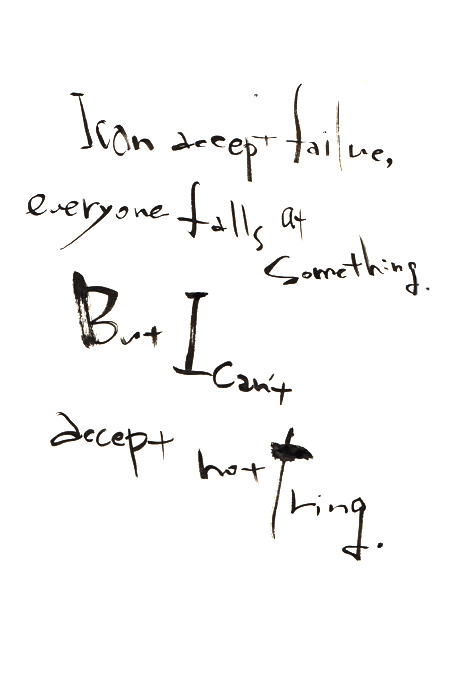 I can accept failue,
everyone falls at
something.
But I can't
accept not
tring.